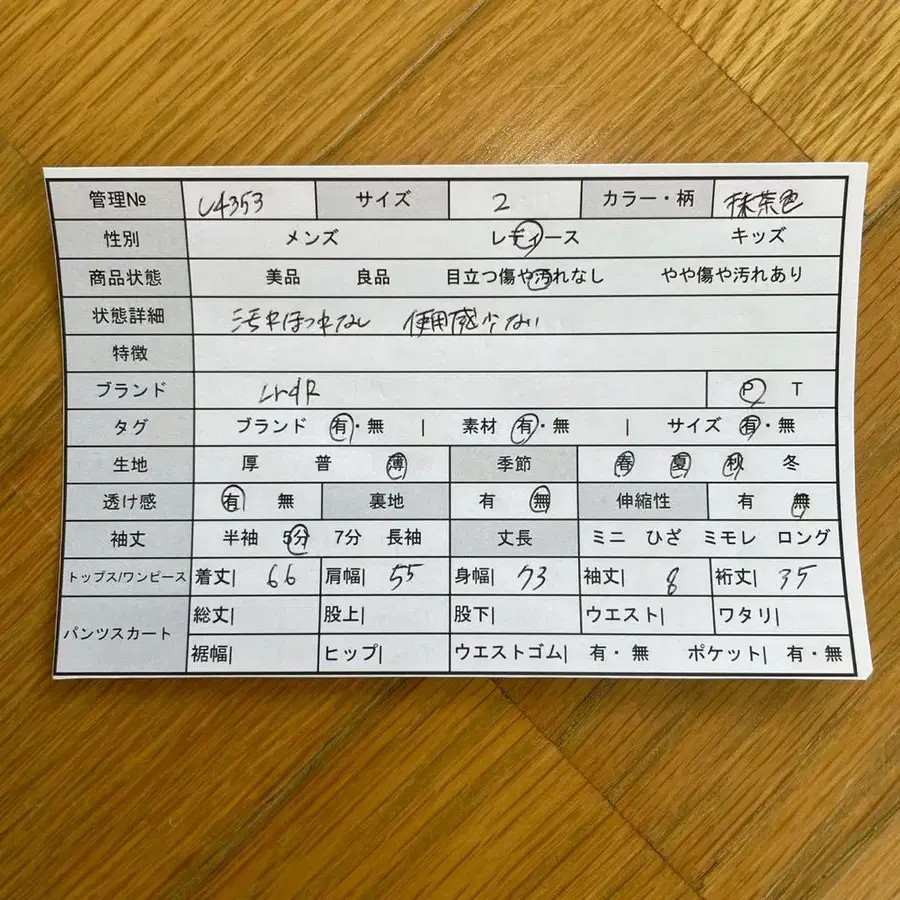 管理№ U4353 サイズ 2 カラー・柄 抹茶色
性別 メンズ レディース キッズ
商品状態 美品 良品 目立つ傷や汚れなし やや傷や汚れあり
状態詳細 汚れほつれなし 使用感少ない
特徴
ブランド P T
タグ ブランド 有・無 | 素材 有・無 | サイズ 有・無
生地 厚 普 薄 季節 春 夏 秋 冬
透け感 有 無 裏地 有 無 伸縮性 有 無
袖丈 半袖 5分 7分 長袖 丈長 ミニ ひざ ミモレ ロング
トップス/ワンピース 着丈| 66 肩幅| 55 身幅| 73 袖丈| 8 裄丈| 35
パンツスカート 総丈| 股上| 股下| ウエスト| ワタリ|
裾幅| ヒップ| ウエストゴム| 有・無 ポケット| 有・無